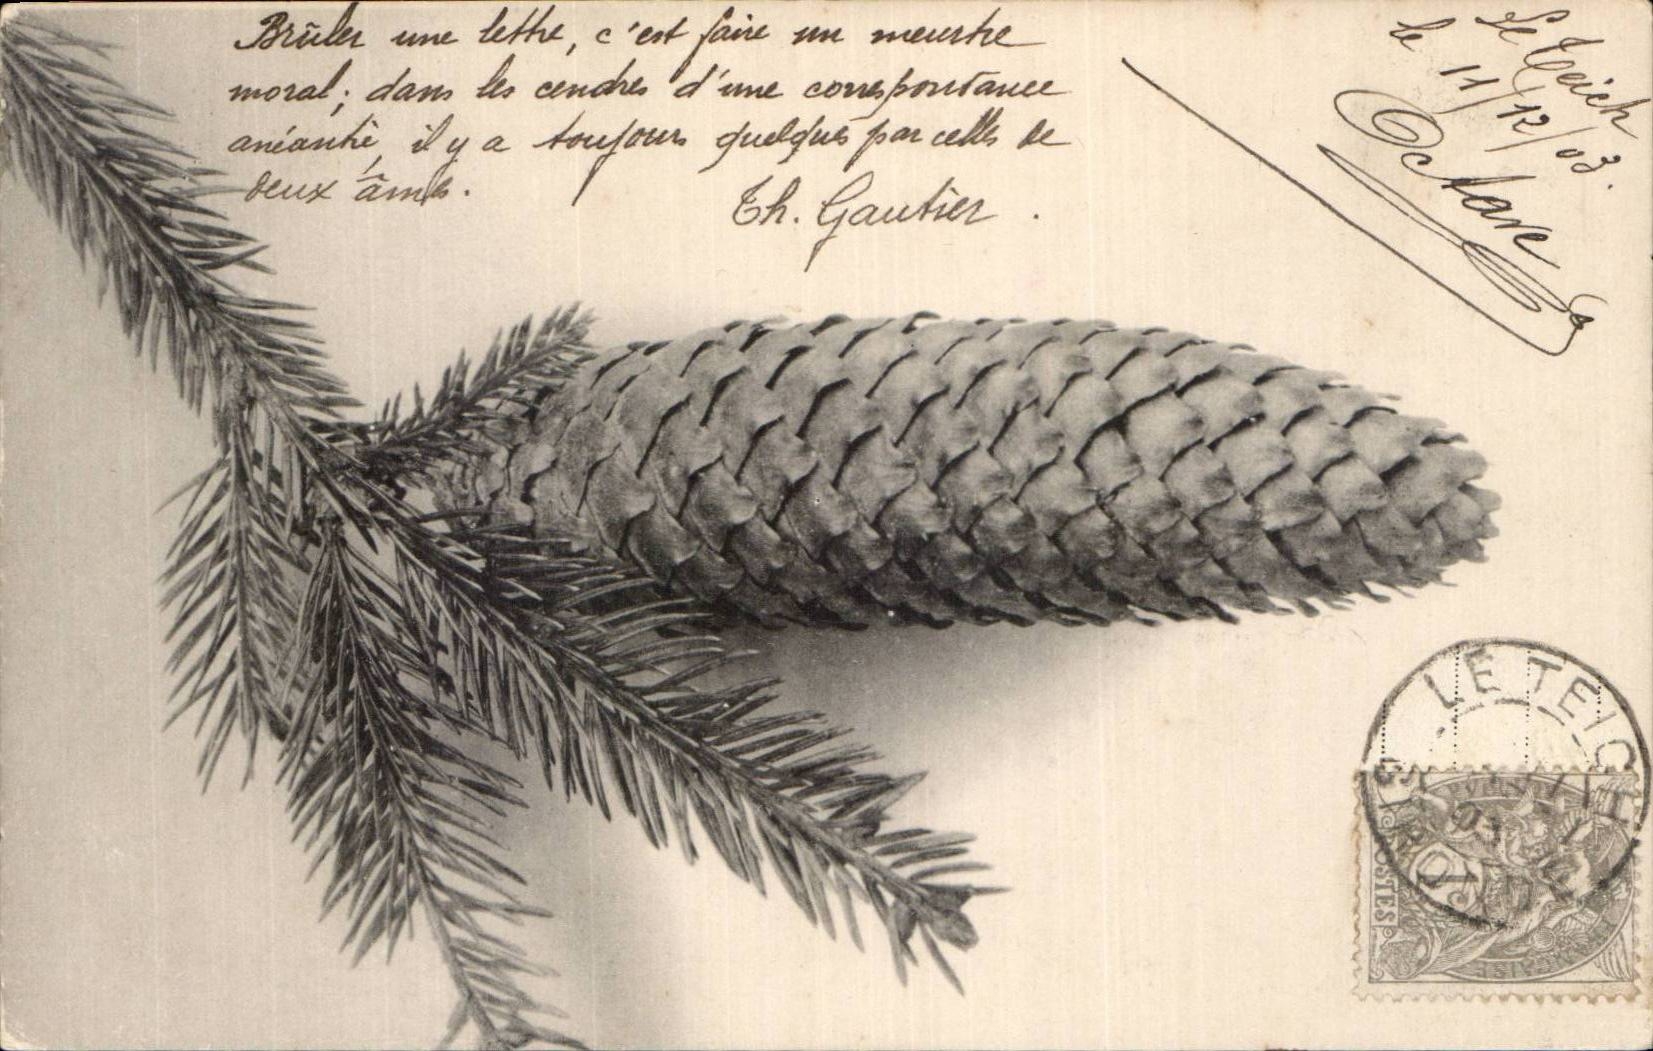 Brûler une lettre, c'est faire un meurtre
moral; dans les cendres d'une correspondance
anéantie, il y a toujours quelques parcelles de
deux âmes.
Th. Gautier.
Le Teich
le 11/12/03.
Octave
LE TEICH
POSTES